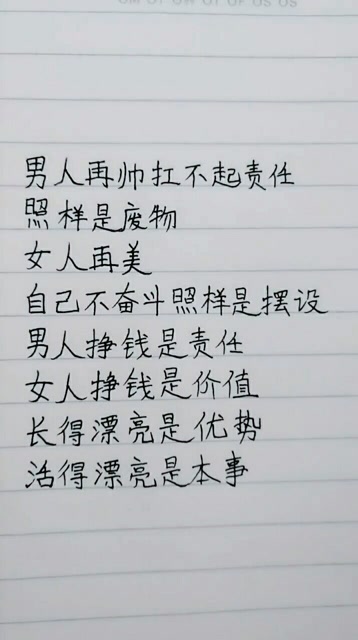 男人再帅扛不起责任
照样是废物
女人再美
自己不奋斗照样是摆设
男人挣钱是责任
女人挣钱是价值
长得漂亮是优势
活得漂亮是本事